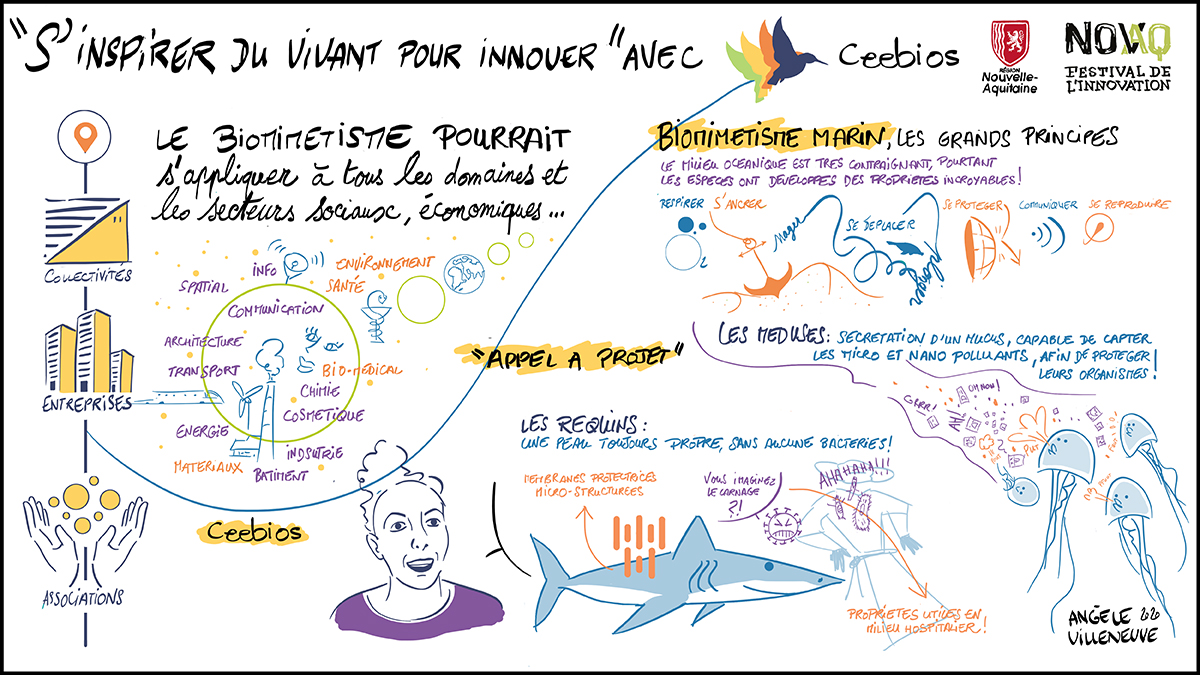 "S'INSPIRER DU VIVANT POUR INNOVER" AVEC
Ceebios
RÉGION
Nouvelle-
Aquitaine
NOVAQ
FESTIVAL DE
L'INNOVATION
LE BIOMIMETISME POURRAIT
s'appliquer à tous les domaines et
les secteurs sociaux, économiques...
COLLECTIVITÉS
ENTREPRISES
ASSOCIATIONS
INFO
ENVIRONNEMENT
SPATIAL
SANTÉ
COMMUNICATION
ARCHITECTURE
TRANSPORT
BIO-MEDICAL
CHIMIE
COSMETIQUE
ENERGIE
INDSUTRIE
MATERIAUX
BATIMENT
Ceebios
"APPEL A PROJET"
BIOMIMETISME MARIN, LES GRANDS PRINCIPES
LE MILIEU OCEANIQUE EST TRES CONTRAIGNANT, POURTANT
LES ESPECES ONT DEVELOPPES DES PROPRIETES INCROYABLES!
RESPIRER
S'ANCRER
Nager
SE DEPLACER
plonger
SE PROTEGER
COMMUNIQUER
SE REPRODUIRE
2
LES MEDUSES: SECRETATION D'UN MUCUS, CAPABLE DE CAPTER
LES MICRO ET NANO POLLUANTS, AFIN DE PROTEGER
LEURS ORGANISMES!
OH NON!
GRRR!
LES REQUINS:
UNE PEAU TOUJOURS PROPRE, SANS AUCUNE BACTERIES!
MEMBRANES PROTECTRICES
MICRO-STRUCTURÉES
VOUS IMAGINEZ
LE CARNAGE
?!
AHAHAHA!!!
PROPRIETES UTILES EN
MILIEU HOSPITALIER!
ANGÈLE 2020
VILLENEUVE